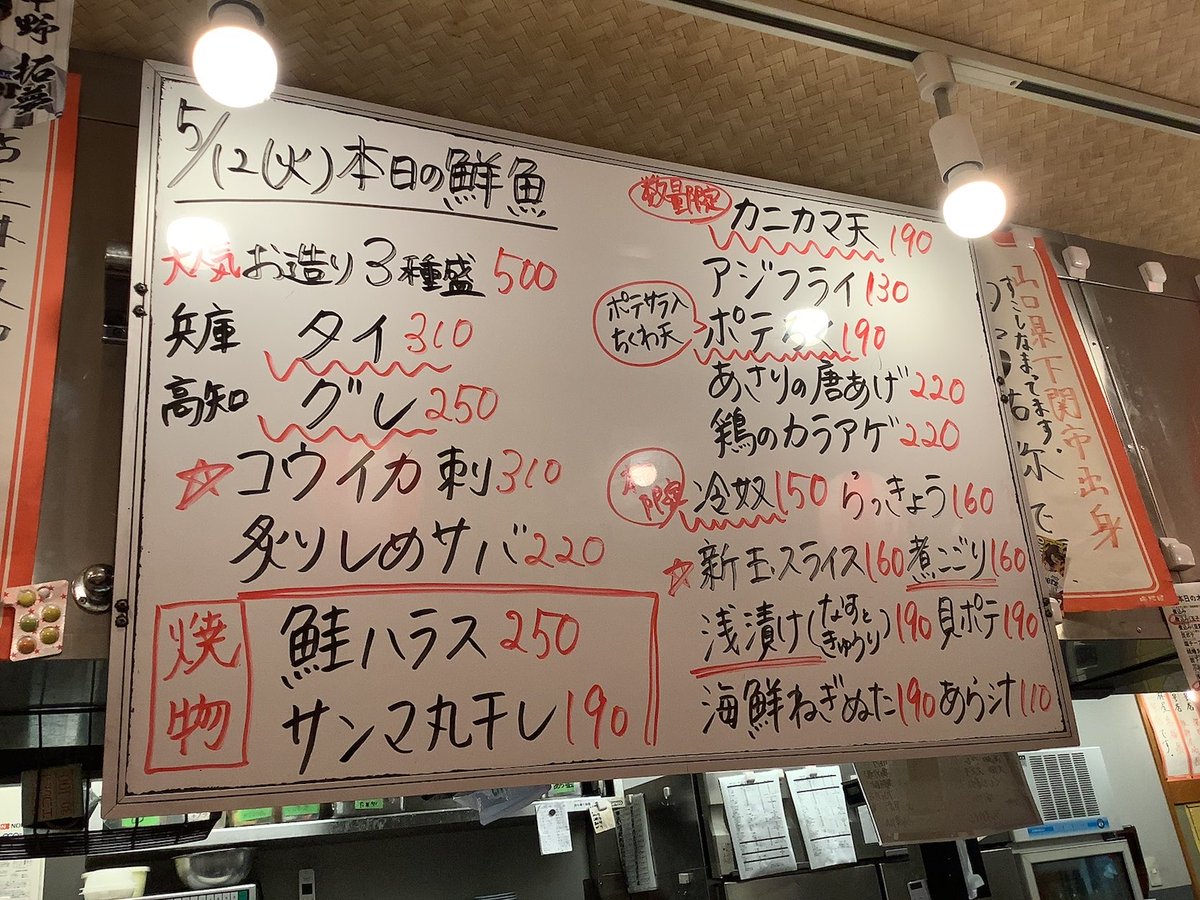 5/12(火)本日の鮮魚
人気 お造り3種盛 500
兵庫 タイ 310
高知 グレ 250
☆コウイカ刺 310
炙りしめサバ 220
焼物
鮭ハラス 250
サンマ丸干し 190
数量限定 カニカマ天 190
アジフライ 130
ポテサラ入
ちくわ天
ポテ 190
あさりの唐あげ 220
鶏のカラアゲ 220
限定 冷奴 150 らっきょう 160
☆新玉スライス 160 煮こごり 160
浅漬け(なすときゅうり) 190 貝ポテ 190
海鮮ねぎぬた 190 あら汁 110
山口県下関市出身